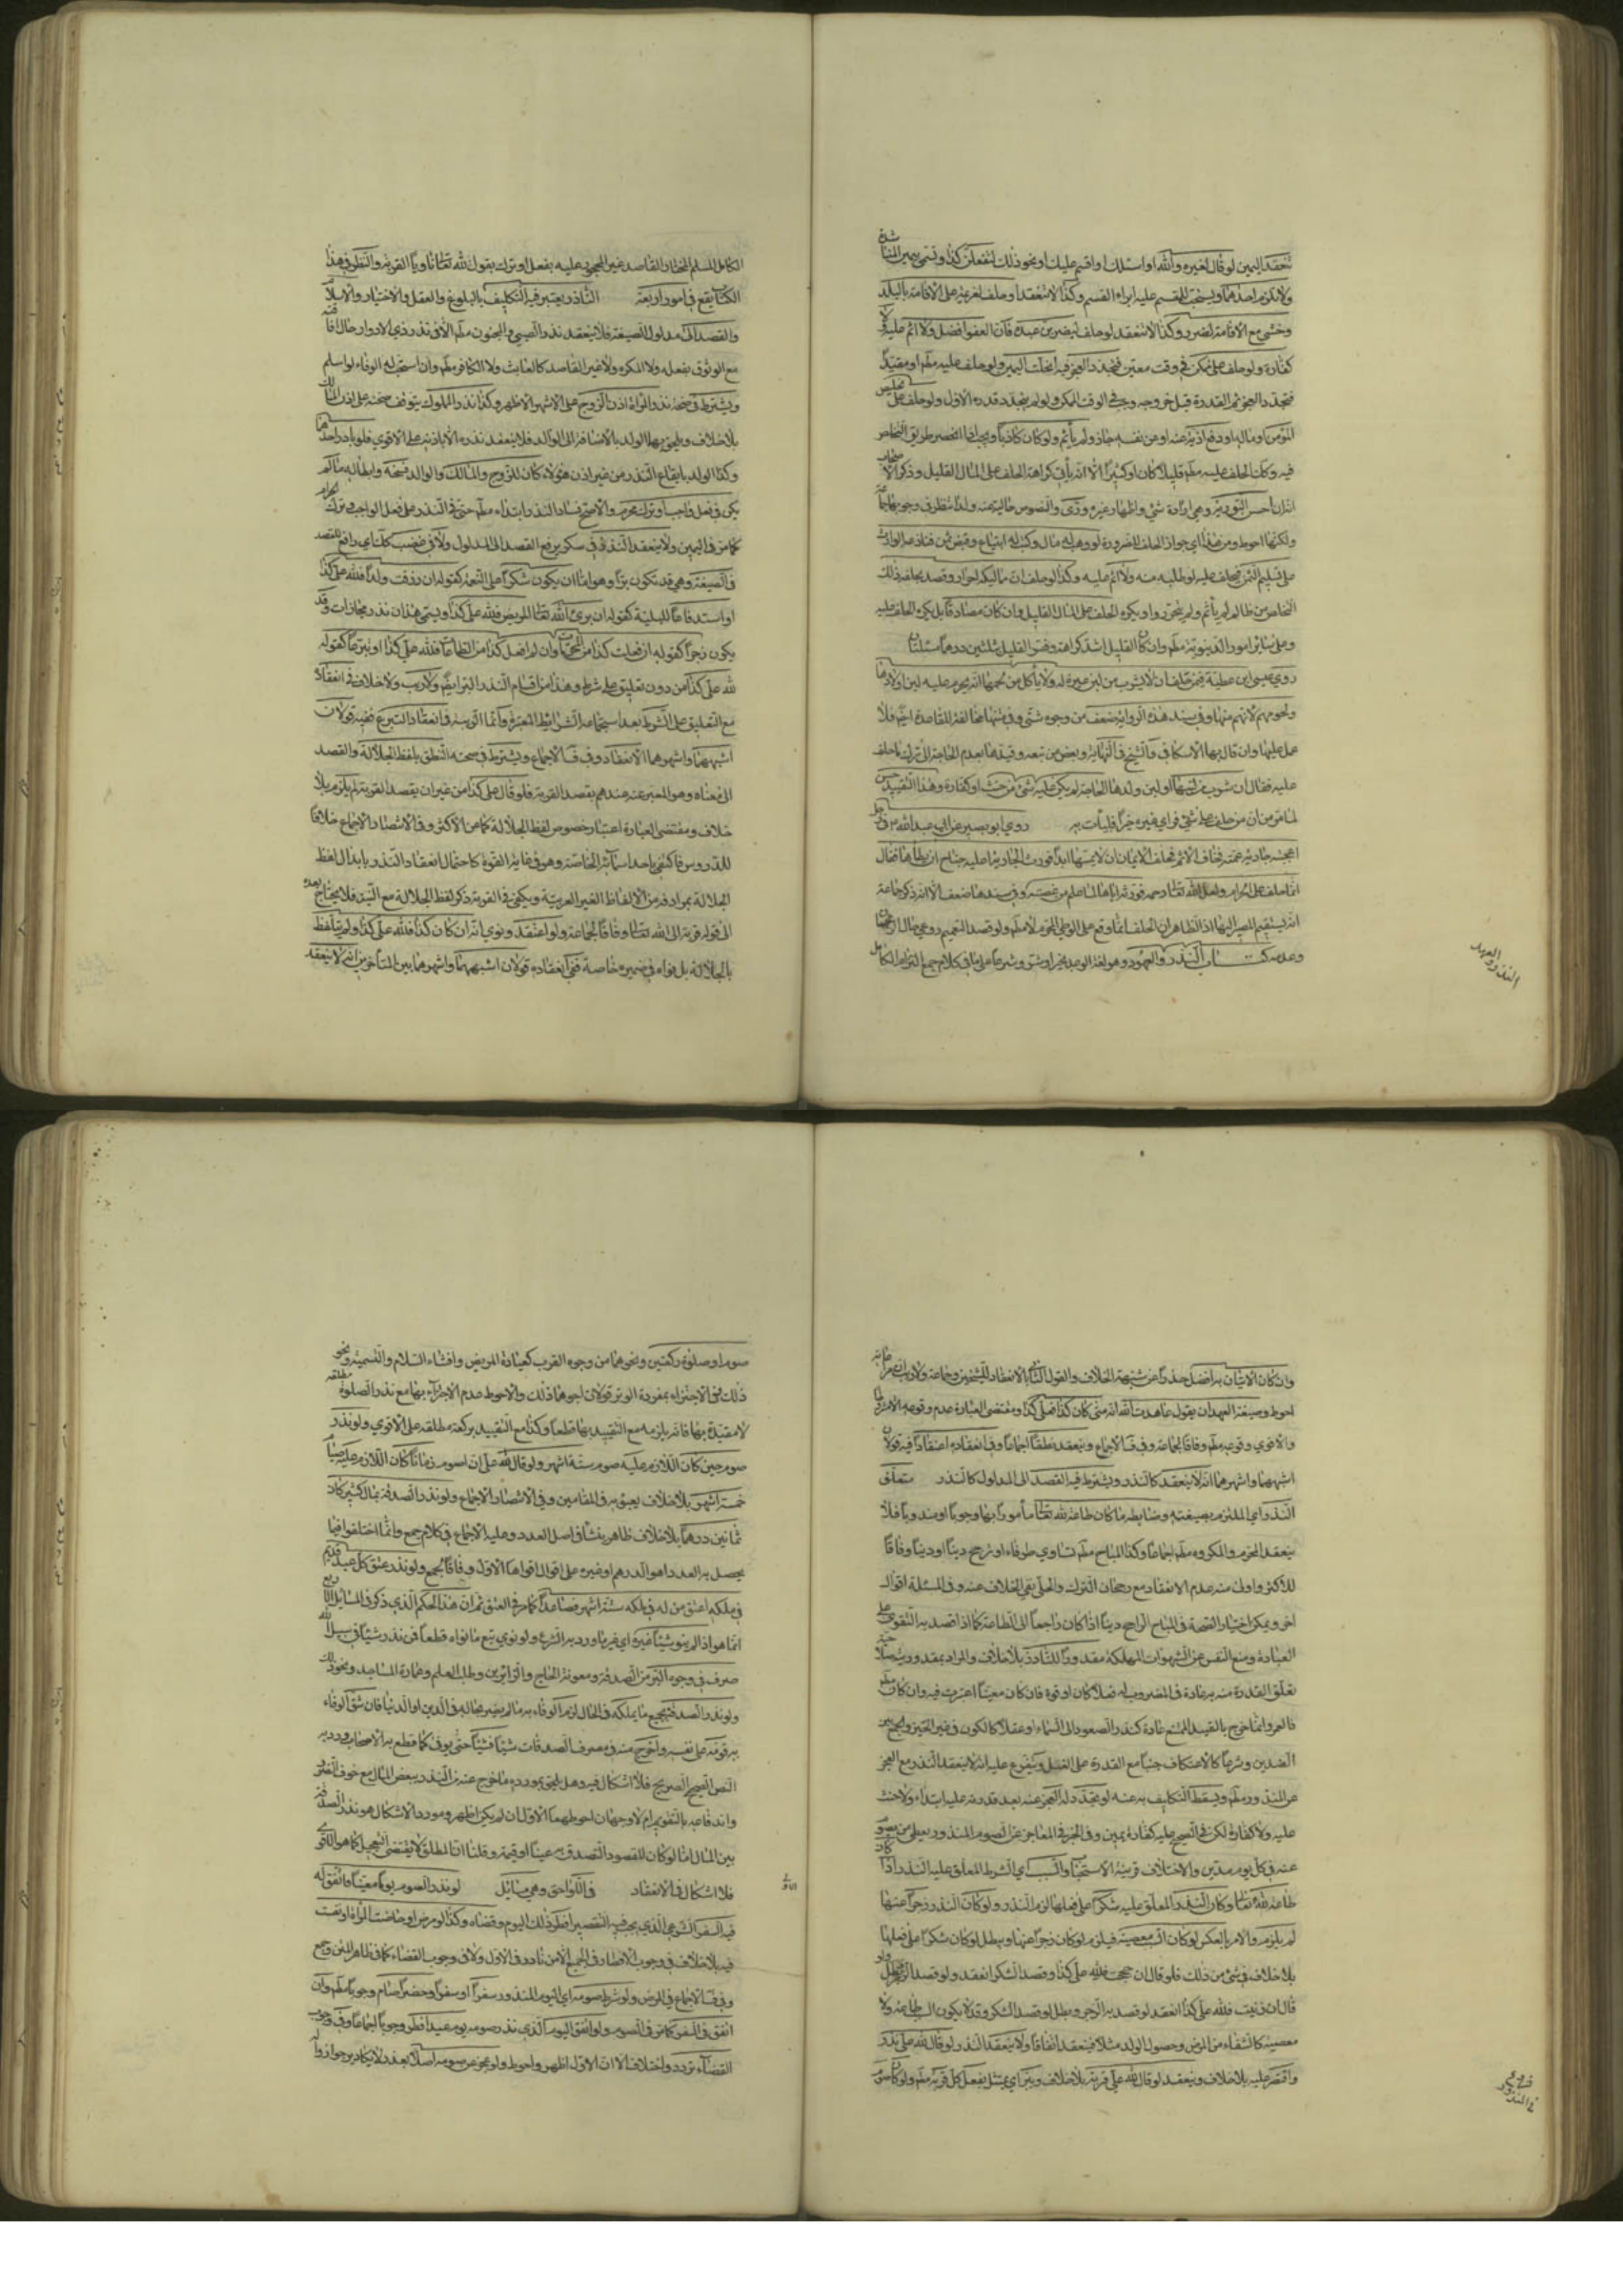 تنعقد اليمين لو قال لغيره والله او اسئلك او اقسم عليك او نحو ذلك لتفعلن كذا وتسمى يمين المناشدة
ولا تلزم احدهما ويستحب للمقسم عليه ابراء القسم وكذا لا تنعقد لو حلف لغريمه على الاقامة بالبلد
وخشى مع الاقامة الضرر وكذا لا تنعقد لو حلف ليضربن عبده فان العفو افضل ولا اثم عليه ولا
كفارة ولو حلف على ممكن في وقت معين فتجدد العجز فيه انحلت اليمين ولو حلف عليه مطلقا او مقيدا
فتجدد العجز ثم القدرة قبل خروجه وجب في الوقت الممكن ولو لم يتجدد قدره الاول ولو حلف على تخليص
المؤمن او ماله او دفع اذية عنه او عن نفسه جاز ولم يأثم ولو كان كاذبا ويجب اذا انحصر طريق التخلص
فيه وكلت الحلف عليه مطلقا قليلا كان او كثيرا الا انه يأتي كراهة الحلف على المال القليل وذكر الاصحاب
انه ان احسن التورية ورى وهي ارادة شئ واظهار غيره والنصوص خالية عنه ولذا تنظر في وجوبها جماعة
ولكنها احوط ومن هذا اي جواز الحلف للضرورة لو وهب له مال وكتب له ابتياع وقبض ثمن فنازعه الوارث
على تسليم الثمن فحلف عليه لو طلبه منه ولا اثم عليه وكذا لو حلف ان مماليكه احرار وقصد بحلفه ذلك
التخلص من ظالم لم يأثم ولم يتحرروا ويكره الحلف على المال القليل وان كان مصادقا بل يكره الحلف عليه
وعلى سائر امور الدنيوية مطلقا وان كان القليل اشد كراهة وفسر القليل بثلثين درهما مسئلتان
روى عيسى ابن عطية فيمن حلف ان لا يشرب من لبن عنزه له ولا يأكل من لحمها انه يحرم عليه لبن اولادها
ولحومهم لانهم منها وفي سند هذه الرواية ضعف من وجوه شتى وفي متنها مخالفة للقاعدة ايضا فلا
عمل عليها وان قال بها الاسكافي والشيخ في النهاية وبعض من تبعه وقيدها بعدم الحاجة الى ترك ما حلف
عليه فقال ان شرب لحاجته او لبن ولدها لحاجة لم يكن عليه شئ من حنث او كفارة وهذا التقييد حسن
لما مر من ان من حلف على شئ فراى غيره خيرا فليأت به روى ابو بصير عن ابي عبد الله ع في رجل
اعجبته جارية عمته فخاف الاثم فحلف الايمان ان لا يمسها ابدا فورث الجارية اعليه جناح ان يطأها فقال
انما حلف على الحرام ولعل الله تعالى رحمه فورثه اياها لما علم من عفته وفي سندها ضعف الا انه ذكر جماعة
انه يستقيم المصير اليها اذ الظاهر ان الحلف انما وقع على الوطي المحرم لا مطلقا ولو قصد التعميم روعي حال ارجحيتها
وعدمه كتاب النذر والعهود وهو لغة الوعد بخير او شر وشرعا على ما في كلام جمع التزام الكامل
النذور والعهد
الكامل المسلم المختار القاصد غير المحجور عليه بفعل او ترك بقول لله تعالى ناويا القربة والنظر في هذا
الكتاب يقع في امور اربعة الناذر يعتبر فيه التكليف بالبلوغ والعقل والاختيار والاسلام
والقصد الى مدلول الصيغة فلا ينعقد نذر الصبي والمجنون مطلقا الا في نذر ذي الادوار حال افاقته
مع الوثوق بفعله ولا المكره ولا غير القاصد كالعابث ولا الكافر مطلقا وان استحب له الوفاء لو اسلم
ويشترط في صحة نذر المرأة اذن الزوج على الاشهر الاظهر وكذا نذر المملوك يتوقف صحته على اذن المالك
بلا خلاف ويلحق بهما الولد بالاضافة الى الوالد فلا ينعقد نذره الا باذنه على الاقوى فلو بادر احدهما
وكذا الولد بايقاع النذر من غير اذن هؤلاء كان للزوج والمالك والوالد فسخه وابطاله ما لم
يكن في فعل واجب او ترك محرم والاصح فساد النذر ابتداء مطلقا حتى في النذر على فعل الواجب وترك الحرام
كما مر في اليمين ولا ينعقد النذر في سكر يرفع القصد الى المدلول ولا في غضب كذلك اي رافع للقصد
في الصيغة وهي قد تكون برا وهو اما ان يكون شكرا على النعمة كقوله ان رزقت ولدا فلله علي كذا
او استدفاعا للبلية كقوله ان برئ الله تعالى المريض فلله علي كذا ويسمى هذان نذر مجازات وقد
يكون زجرا كقوله ان فعلت كذا من المحرمات او ان لم افعل كذا من الطاعات فلله علي كذا او تبرعا كقوله
لله علي كذا من دون تعليق على شرط وهذا من اقسام النذر البر ايضا ولا ريب ولا خلاف في انعقاده
مع التعليق على الشرط بعد استجماعه الشرايط المعتبرة وانما الريب في انعقاد التبرع ففيه قولان
اشبههما واشهرهما الانعقاد وفي ف الاجماع ويشترط في صحته النطق بلفظ الجلالة والقصد
الى معناه وهو المعبر عنه عندهم بقصد القربة فلو قال علي كذا من غير ان يقصد القربة لم يلزم بلا
خلاف ومقتضى العبارة اعتبار خصوص لفظ الجلالة كما عن الاكثر وفي الانتصار الاجماع خلافا
للدروس فاكتفى باحد اسمائه الخاصة وهو في غاية القوة كاحتمال انعقاد النذر بابدال لفظ
الجلالة بمرادفه من الالفاظ الغير العربية ويكفي في القربة ذكر لفظ الجلالة مع النية فلا يحتاج بعده
الى قوله قربة الى الله تعالى وفاقا لجماعة ولو اعتقد ونوى انه ان كان كذا فلله علي كذا ولم يتلفظ
بالجلالة بل نواه في ضميره خاصة ففي انعقاده قولان اشبههما واشهرهما بين المتأخرين انه لا ينعقد
وان كان الاتيان به افضل حذرا عن شبهة الخلاف والقول الثاني بالانعقاد للشيخين وجماعة ولا ريب انه
احوط وصيغة العهد ان يقول عاهدت الله انه متى كان كذا فعلي كذا ومقتضى العبارة عدم وقوعه الا مشروطا
والاقوى وقوعه مطلقا وفاقا لجماعة وفي ف الاجماع وينعقد نطقا اجماعا وفي انعقاده اعتقادا فيه قولان
اشبههما واشهرهما انه لا ينعقد كالنذر ويشترط فيه القصد الى المدلول كالنذر متعلق
النذر اي الملتزم بصيغته وضابطه ما كان طاعة لله تعالى مأمورا بها وجوبا او مندوبا فلا
ينعقد المحرم والمكروه مطلقا اجماعا وكذا المباح مطلقا تساوى طرفاه او رجح دينا او دنيا وفاقا
للاكثر واولى منه عدم الانعقاد مع رجحان الترك والحلي نفى الخلاف عنه وفي المسئلة اقوال
اخر ويمكن اختيار الصحة في المباح الراجح دينا اذا كان راجعا الى الطاعة كما اذا قصد به التقوى على
العبادة ومنع النفس عن الشهوات المهلكة مقدورا للناذر بلا خلاف والمراد بمقدوريته صحة
تعلق القدرة منه به عادة في المضروب له فعلا كان او قوة فان كان معينا اعتبرت فيه وان كان مطلقا
فالعمر وانما خرج بالقيد الممتنع عادة كنذر الصعود الى السماء او عقلا كالكون في غير الحيز والجمع بين
الضدين وشرعا كالاعتكاف جنبا مع القدرة على الغسل ويتفرع عليه انه لا ينعقد النذر مع العجز
عن المنذور مطلقا ويسقط التكليف به عنه لو تجدد له العجز عنه بعد قدرته عليه ابتداء ولا حنث
عليه ولا كفارة لكن في الصحيح عليه كفارة يمين وفي الخبر في العاجز عن الصوم المنذور يعطي من يصوم
عنه في كل يوم مدين والاختلاف قرينة الاستحباب والسبب اي الشرط المعلق عليه النذر اذا كان
طاعة لله تعالى وكان النذر المعلق عليه شكرا على فعلها لزم النذر ولو كان النذر زجرا عنها
لم يلزم والامر بالعكس لو كان السبب معصية فيلزم لو كان زجرا عنها ويبطل لو كان شكرا على فعلها
بلا خلاف في شئ من ذلك فلو قال ان حججت فلله علي كذا وقصد الشكر انعقد ولو قصد الزجر بطل ولو
قال ان زنيت فلله علي كذا انعقد لو قصد به الزجر وبطل لو قصد الشكر وقد لا يكون السبب طاعة ولا
معصية كالشفاء من المرض وحصول الولد مثلا فينعقد اتفاقا ولا ينعقد النذر لو قال لله علي نذر
واقتصر عليه بلا خلاف وينعقد لو قال لله علي قربة بلا خلاف ويبر اي يمتثل بفعل كل قربة مطلقا ولو كان صوم
فروع في النذور
صوما او صلوة ركعتين ونحوهما من وجوه القرب كعيادة المريض وافشاء السلام والتسمية ونحو
ذلك في الاجتزاء بمفردة الوتر قولان اجودهما ذلك والاحوط عدم الاجزاء بها مع نذر الصلوة مطلقة
لا مقيدة بها فانه يلزمه مع التقييد بها قطعا وكذا مع التقييد بركعة مطلقة على الاقوى ولو نذر
صوم حين كان اللازم عليه صوم ستة اشهر ولو قال لله علي ان اصوم زمانا كان اللازم عليه صيام
خمسة اشهر بلا خلاف يعبؤ به في المقامين وفي الانتصار الاجماع ولو نذر الصدقة بمال كثير كان
ثمانين درهما بلا خلاف ظاهر بيننا في اصل العدد وعليه الاجماع في كلام جمع وانما اختلفوا فيما
يحصل به العدد اهو الدرهم او غيره على اقوال اقواها الاول وفاقا لجمع ولو نذر عتق كل عبد قديم
في ملكه اعتق من له في ملكه ستة اشهر فصاعدا كما مر في العتق ثم ان هذا الحكم الذي ذكر في المسائل الاربع
انما هو اذا لم ينو شيئا غيره اي غير ما ورد به الشرع ولو نوى تبع ما نواه قطعا فمن نذر شيئا في سبيل الله
صرف في وجوه البر من الصدقة ومعونة الحاج والزائرين وطلب العلم وعمارة المساجد ونحو ذلك
ولو نذر الصدقة بجميع ما يملكه في الحال لزم الوفاء به ما لم يضر بحاله في الدين او الدنيا فان شق الوفاء
به قومه على نفسه واخرج منه في مصرف الصدقات شيئا فشيئا حتى يوفي كما قطع به الاصحاب وورد به
النص الصحيح الصريح فلا اشكال فيه وهل يلحق بمورده ما خرج عنه من النذر ببعض المال مع خوف الضرر
واندفاعه بالتقويم ام لا وجهان احوطهما الاول ان لم يكن اظهر ومورد الاشكال هو نذر الصدقة
بعين المال اما لو كان المقصود التصدق به عينا او قيمة وقلنا ان المطلق لا يقتضي التعجيل كما هو الاقوى
فلا اشكال في الانعقاد في اللواحق وهي مسائل لو نذر الصوم يوما معينا فاتفق له
فيه السفر الشرعي الذي يجب فيه التقصير افطر ذلك اليوم وقضاه وكذا لو مرض او حاضت المرأة او نفست
فيه بلا خلاف في وجوب الافطار في الجميع الا من نادر في الاول ولا في وجوب القضاء كما في ظاهر المتن وجمع
وفي ف الاجماع في المرض ولو شرط صومه اي اليوم المنذور سفرا او سفرا وحضرا صام وجوبا مطلقا وان
اتفق في السفر كما مر في الصوم ولو اتفق اليوم الذي نذر صومه يوم عيد افطر وجوبا اجماعا وفي وجوب
القضاء تردد واختلاف الا ان الاول اظهر واحوط ولو عجز عن صومه اصلا بعذر لا يكاد يرجو زواله